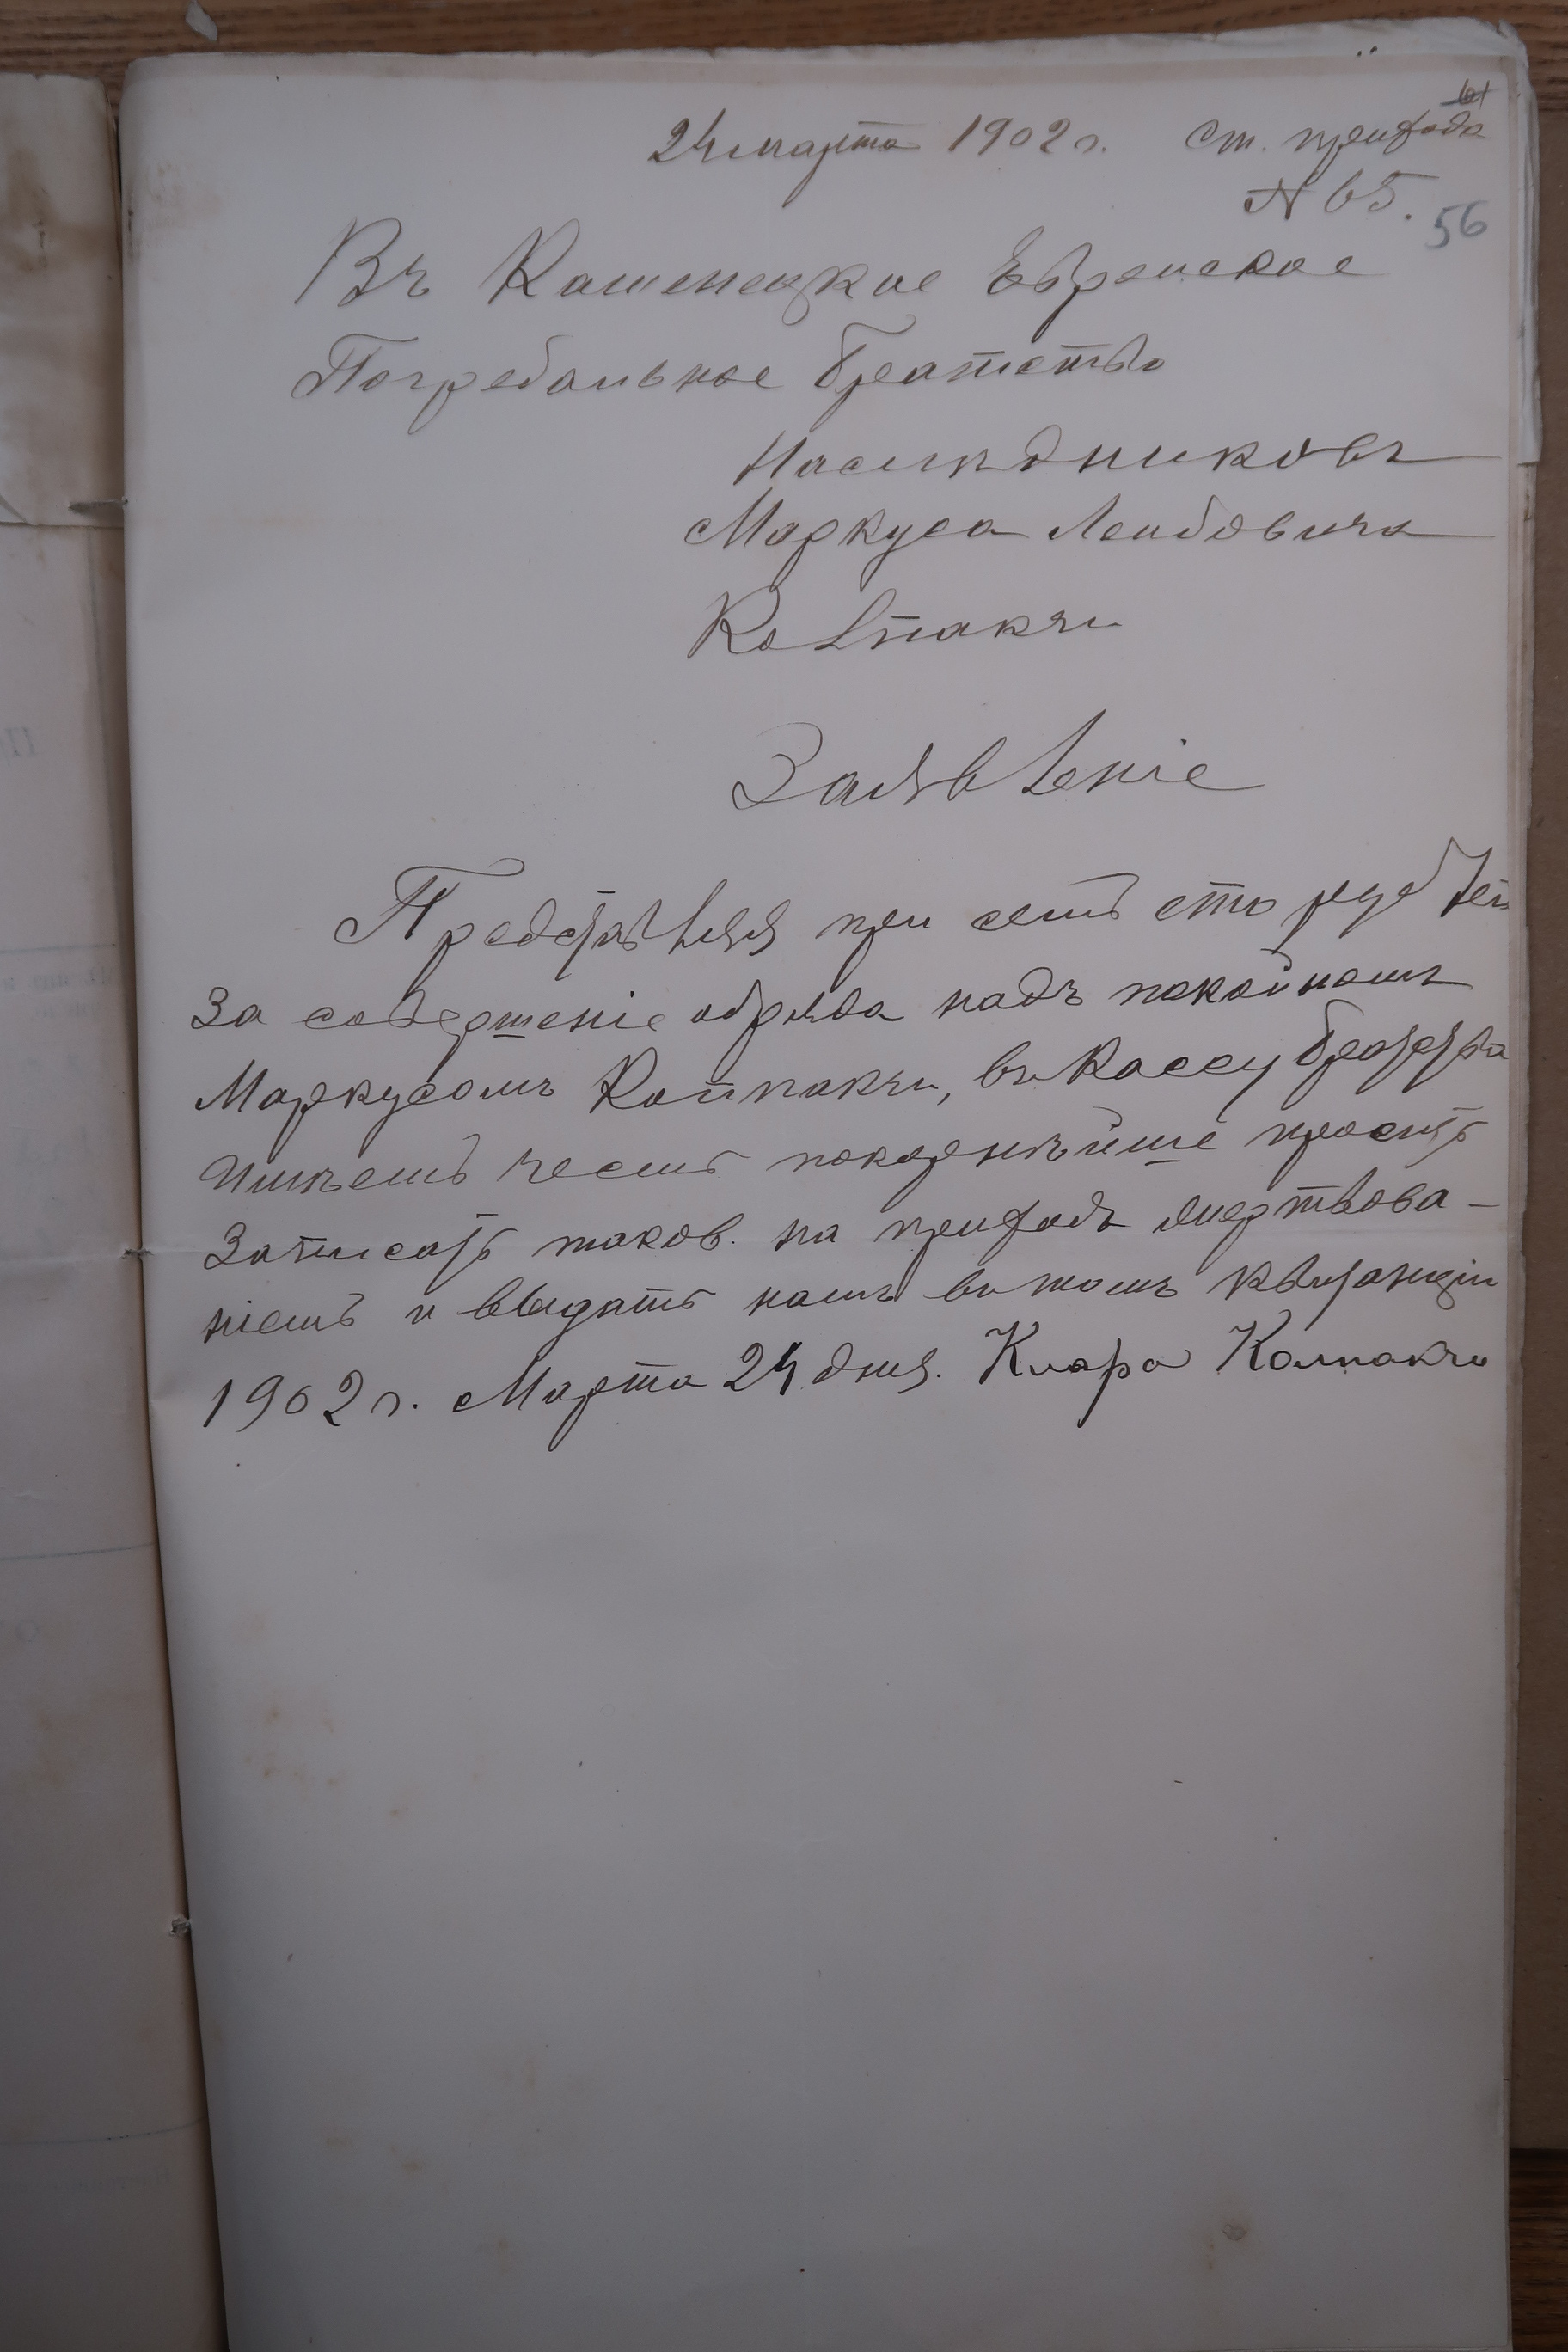 61
24 марта 1902 г. ст. прихода
№ 65. 56
Въ Каменецкое Еврейское
Погребальное братство
Наслѣдниковъ
Маркуса Лейбовича
Колпакчи
Заявленіе
Представляя при семъ сто рублей
За совершеніе обряда надъ покойномъ
Маркусомъ Колпакчи, въ кассу братства
Имѣемъ честь покорнѣйше просить
Записать таков. на приходъ
ніемъ и выдать намъ въ томъ квитанціи
1902 г. Марта 24 дня. Клара Колпакчи